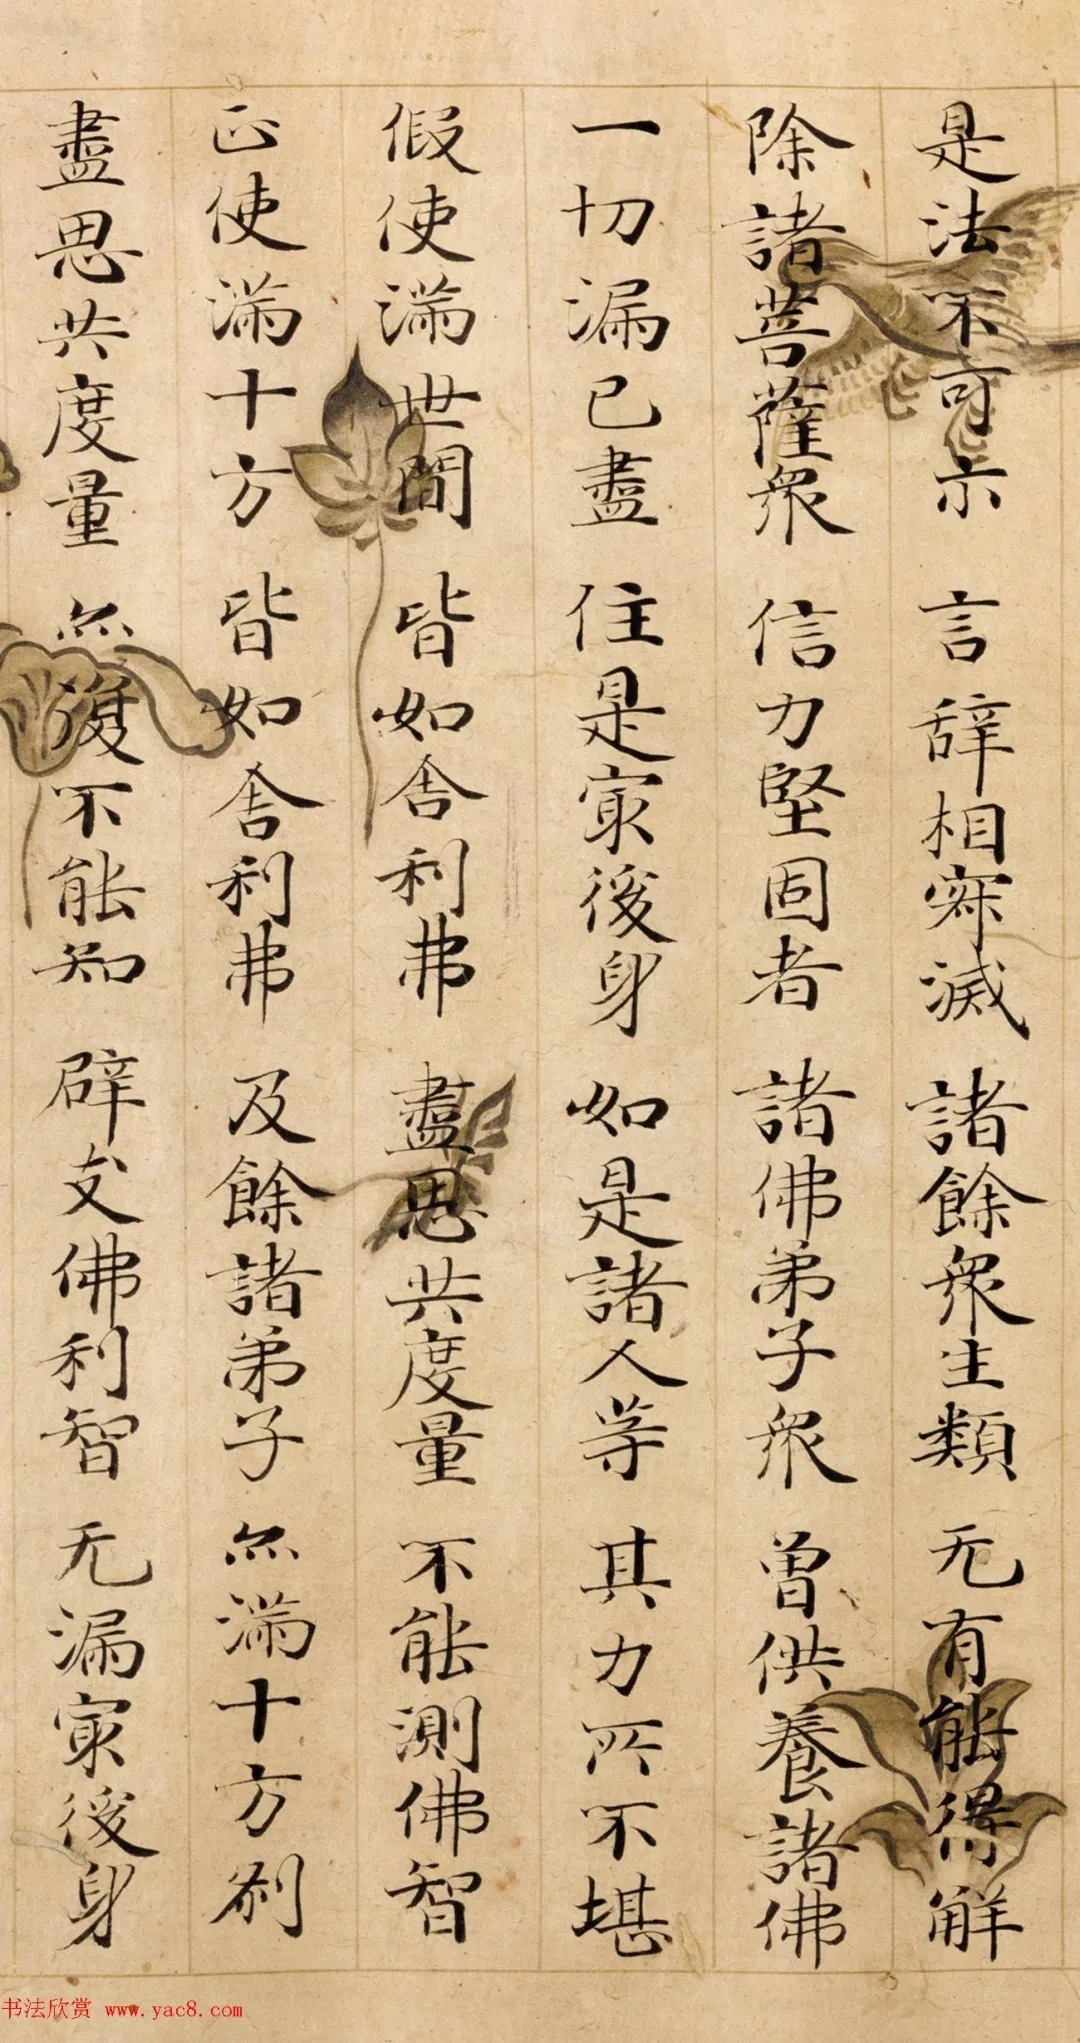 是法不可示 言辞相寂滅 諸餘衆生類 无有能得解
除諸菩薩衆 信力堅固者 諸佛弟子衆 曾供養諸佛
一切漏已盡 住是冣後身 如是諸人等 其力所不堪
假使滿世間 皆如舍利弗 盡思共度量 不能測佛智
正使滿十方 皆如舍利弗 及餘諸弟子 亦滿十方刹
盡思共度量 亦復不能知 辟支佛利智 无漏冣後身
书法欣赏 www.yac8.com